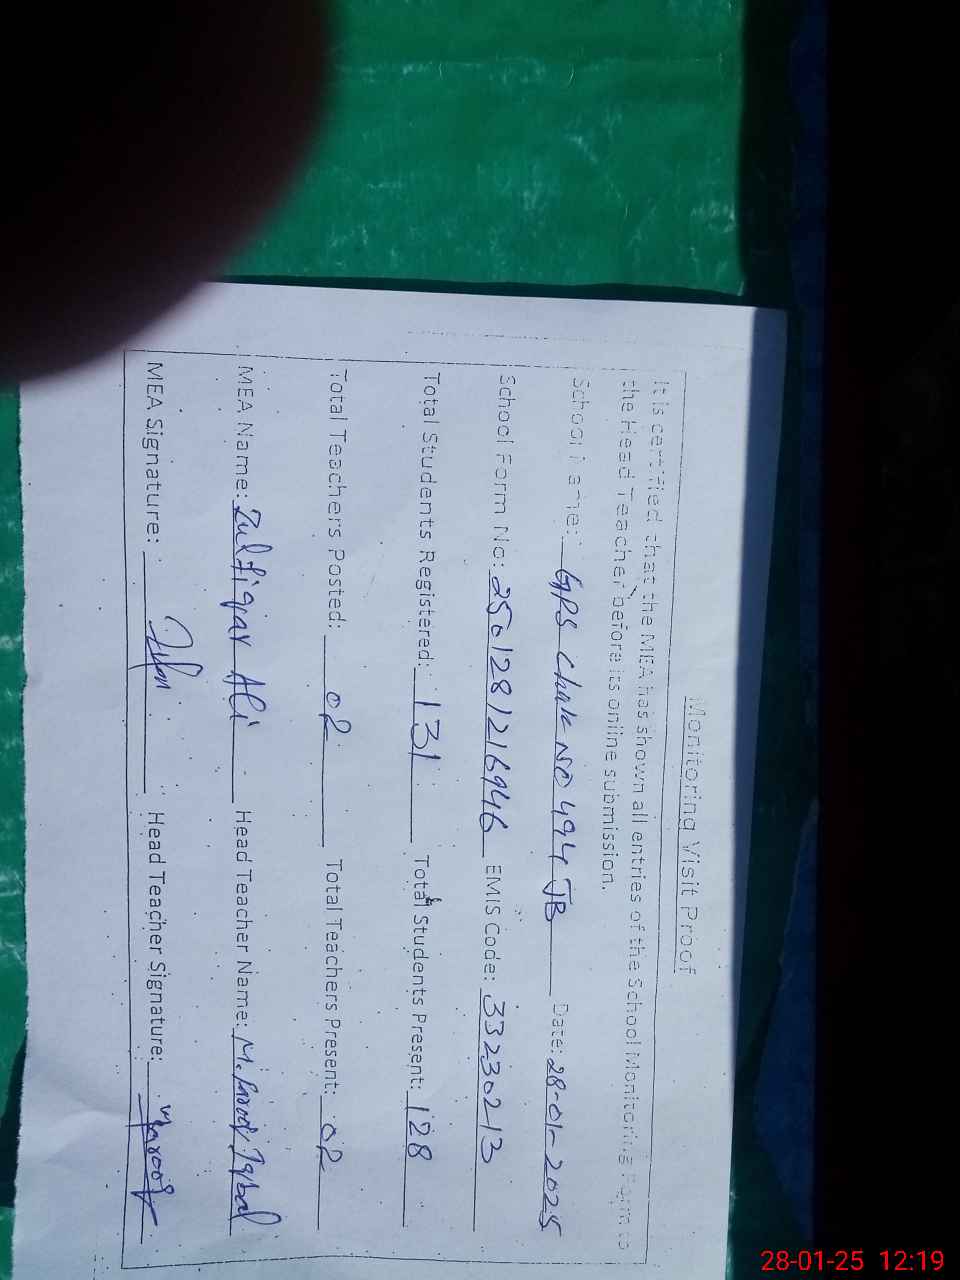 Monitoring Visit Proof
It is certified that the MEA has shown all entries of the School Monitoring Form to
the Head Teacher before its online submission.
School Name: GPS Chak No 494 JB Date: 28-01-2025
School Form No: 2501281216946 EMIS Code: 33230213
Total Students Registered: 131 Total Students Present: 128
Total Teachers Posted: 02 Total Teachers Present: 02
MEA Name: Zulfiqar Ali Head Teacher Name: M. Iqbal
MEA Signature: Head Teacher Signature:
28-01-25 12:19